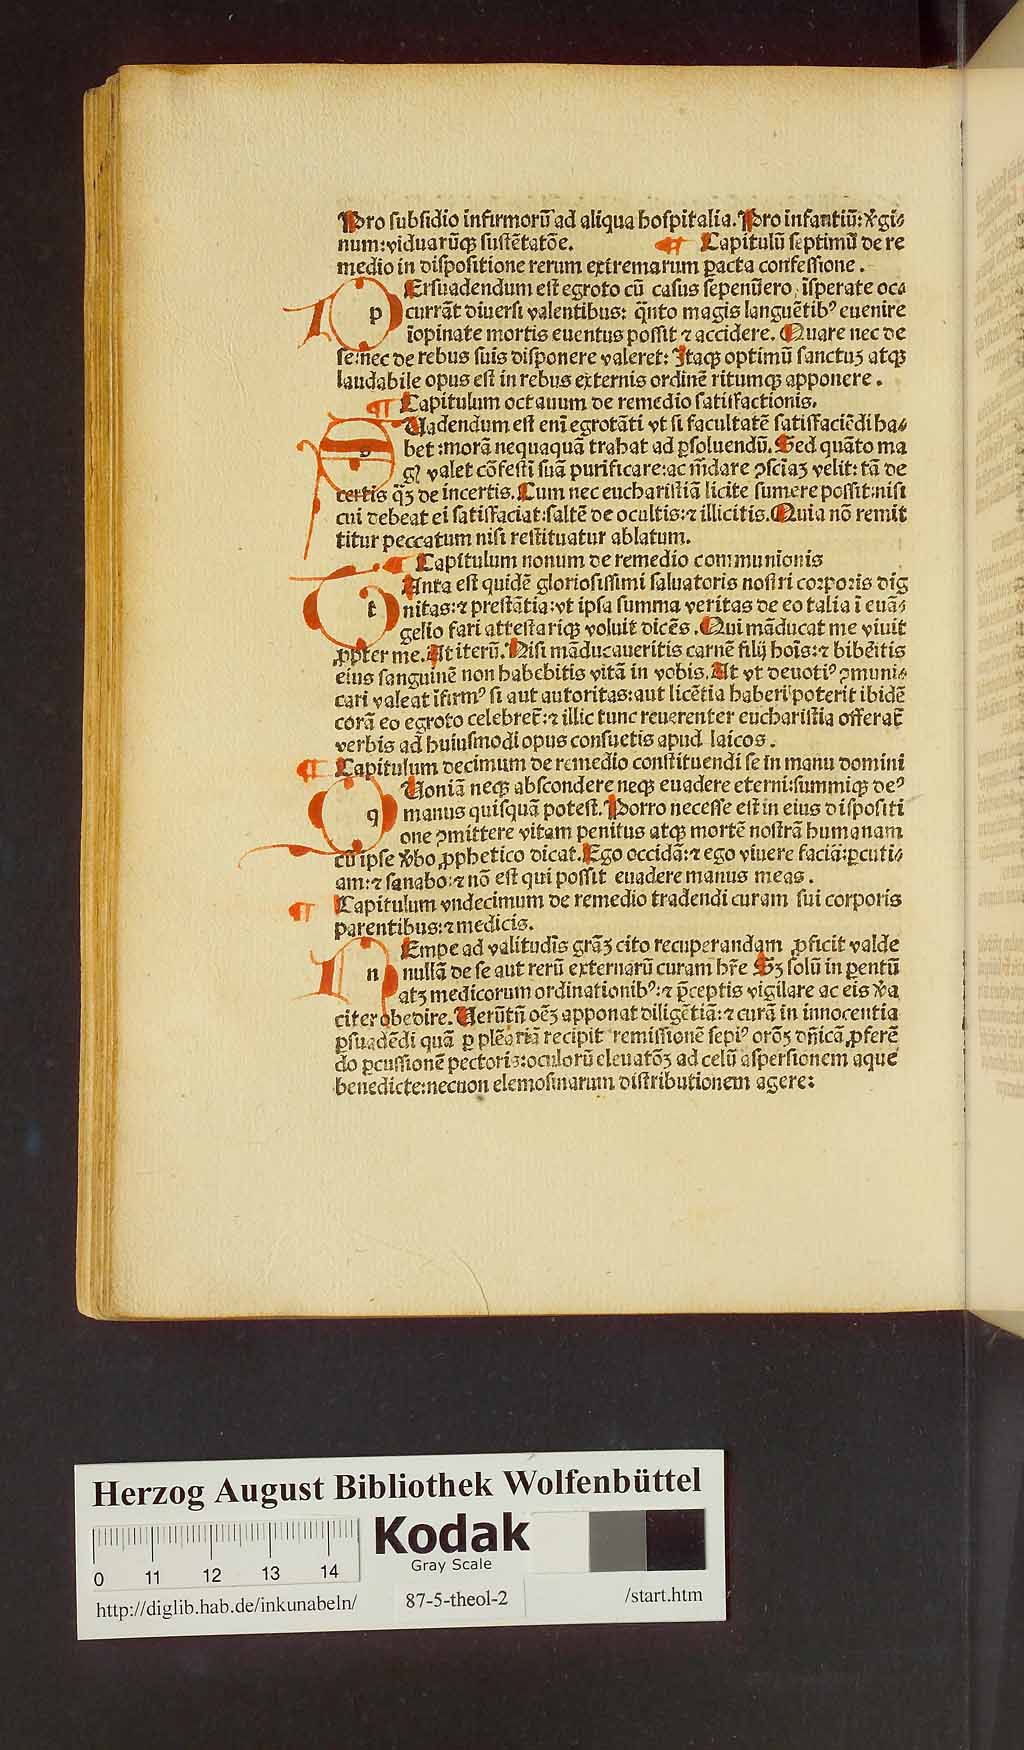 Pro subsidio infirmorū ad aliqua hospitalia. Pro infantiū: v̄gi⸗
num: viduarūqꝫ sustētatōe. ¶ Capitulū septimū de re
medio in dispositione rerum extremarum ꝑacta confessione.
pErsuadendum est egroto cū casus sepenūero isperate oc⸗
currāt diuersi valentibus: q̄nto magis languētibꝰ euenire
īopinate mortis euentus possit ⁊ accidere. Quare nec de
se: nec de rebus suis disponere valeret: Itaqꝫ optimū sanctuꝫ atqꝫ
laudabile opus est in rebus externis ordinē ritumqꝫ apponere.
¶ Capitulum octauum de remedio satisfactionis.
Uadendum est enī egrotāti vt si facultatē satisfaciēdi ha⸗
bet: morā nequaquā trahat ad ꝑsoluendū. Sed quāto ma
gꝭ valet cōfestī suā purificare: ac mūdare ꝯsciaꝫ velit: tā de
certis q̄ꝫ de incertis. Cum nec eucharistiā licite sumere possit: nisi
cui debeat ei satisfaciat: saltē de ocultis: ⁊ illicitis. Quia nō remit
titur peccatum nisi restituatur ablatum.
¶ Capitulum nonum de remedio communionis
tAnta est quidē gloriosissimi saluatoris nostri corporis dig
nitas: ⁊ prestātia: vt ipsa summa veritas de eo talia ī euā⸗
gelio fari attestariqꝫ voluit dicēs. Qui māducat me viuit
ꝓpter me. At iterū. Nisi māducaueritis carnē filij hois: ⁊ bibēitis
eius sanguinē non habebitis vitā in vobis. At vt deuotiꝰ ꝯmuni⸗
cari valeat īfirmꝰ si aut autoritas: aut licētia haberi poterit ibidē
corā eo egroto celebret̄: ⁊ illic tunc reuerenter eucharistia offerat̄
verbis ad huiusmodi opus consuetis apud laicos.
¶ Capitulum decimum de remedio constituendi se in manu domini
qUoniā neqꝫ abscondere neqꝫ euadere eterni: summiqꝫ deꝰ
manus quisquā potest. Porro necesse est in eius dispositi
one ꝯmittere vitam penitus atqꝫ mortē nostrā humanam
cū ipse v̄bo ꝓphetico dicat. Ego occidā: ⁊ ego viuere faciā: ꝑcuti⸗
am: ⁊ sanabo: ⁊ nō est qui possit euadere manus meas.
¶ Capitulum vndecimum de remedio tradendi curam sui corporis
parentibus: ⁊ medicis.
nEmpe ad valitudīs grāꝫ cito recuperandam ꝓficit valde
nullā de se aut rerū externarū curam hr̄e Sꝫ solū in ꝑentū
atꝫ medicorum ordinationibꝰ: ⁊ p̄ceptis vigilare ac eis v̄a
citer obedire. Uerūtn̄ oēꝫ apponat diligētiā: ⁊ curā in innocentia
ꝑsuadēdi quā ꝑ plēariā recipit remissionē sepiꝰ orōꝫ dn̄icā ꝓferē
do ꝑcussionē pectoris: oculorū eleuatōꝫ ad celū aspersionem aque
benedicte: necnon elemosinarum distributionem agere:
Herzog August Bibliothek Wolfenbüttel
Kodak
Gray Scale
0 11 12 13 14
http://diglib.hab.de/inkunabeln/ 87-5-theol-2 /start.htm